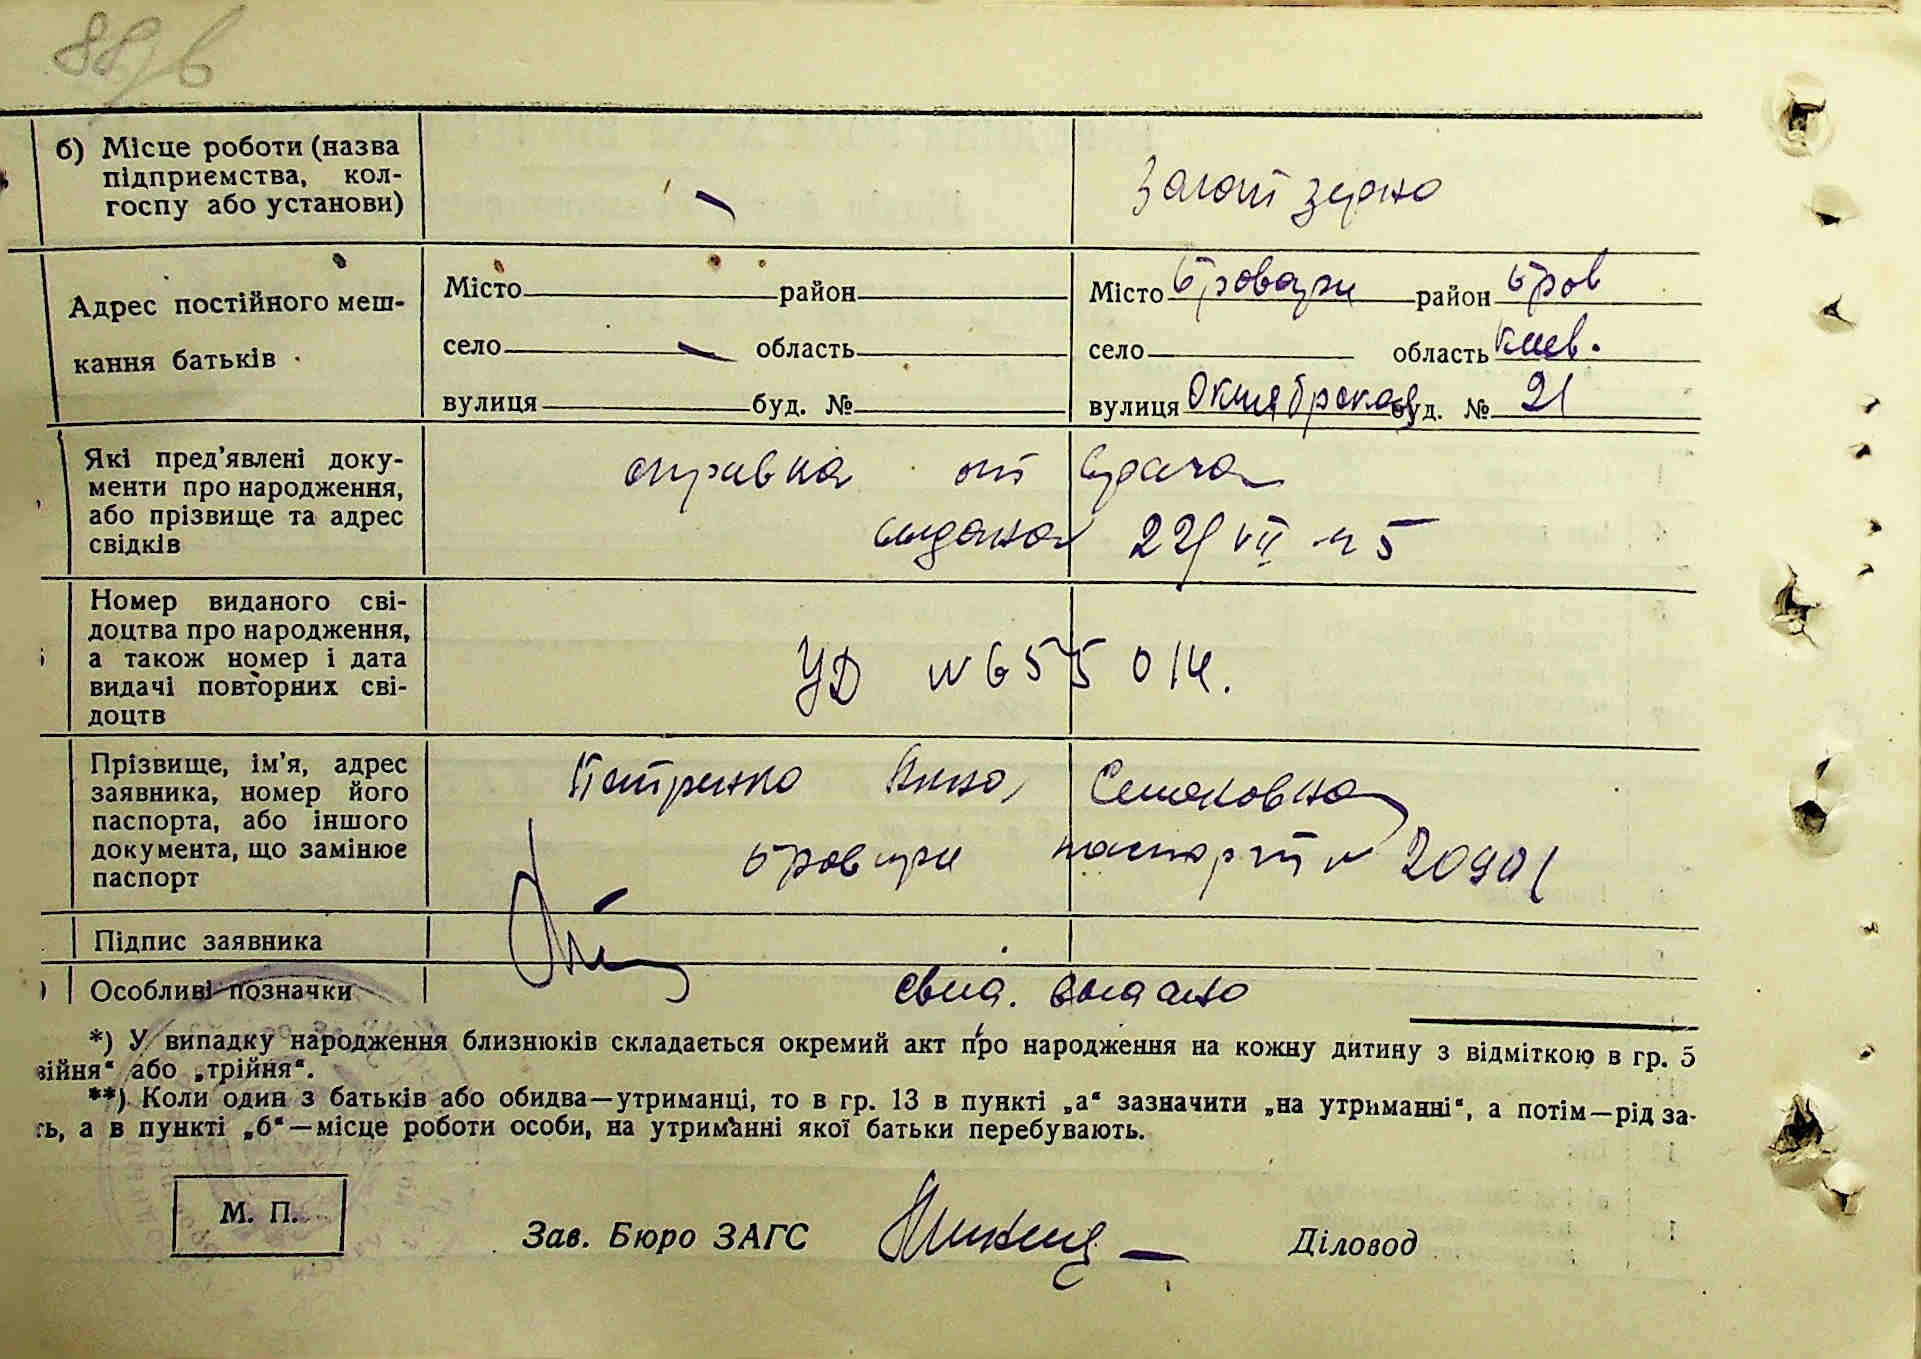 б) Місце роботи (назва
підприємства, кол-
госпу або установи)
Заготзерно
Адрес постійного меш-
кання батьків
Місто район
село область
вулиця буд. №
Місто Бровари район Бров
село область Киев.
вулиця Октябрская буд. № 21
Які пред'явлені доку-
менти про народження,
або прізвище та адрес
свідків
справка от врача
выдана 22/VII 45
Номер виданого сві-
доцтва про народження,
а також номер і дата
видачі повторних сві-
доцтв
УД № 655014.
Прізвище, ім'я, адрес
заявника, номер його
паспорта, або іншого
документа, що замінює
паспорт
Петренко Анна Семеновна
Бровари паспорт № 20901
Підпис заявника
Особливі позначки
свид. выдано
*) У випадку народження близнюків складається окремий акт про народження на кожну дитину з відміткою в гр. 5
війня" або „трійня".
**) Коли один з батьків або обидва—утриманці, то в гр. 13 в пункті „а" зазначити „на утриманні", а потім—рід за-
ть, а в пункті „б"—місце роботи особи, на утриманні якої батьки перебувають.
М. П.
Зав. Бюро ЗАГС Діловод